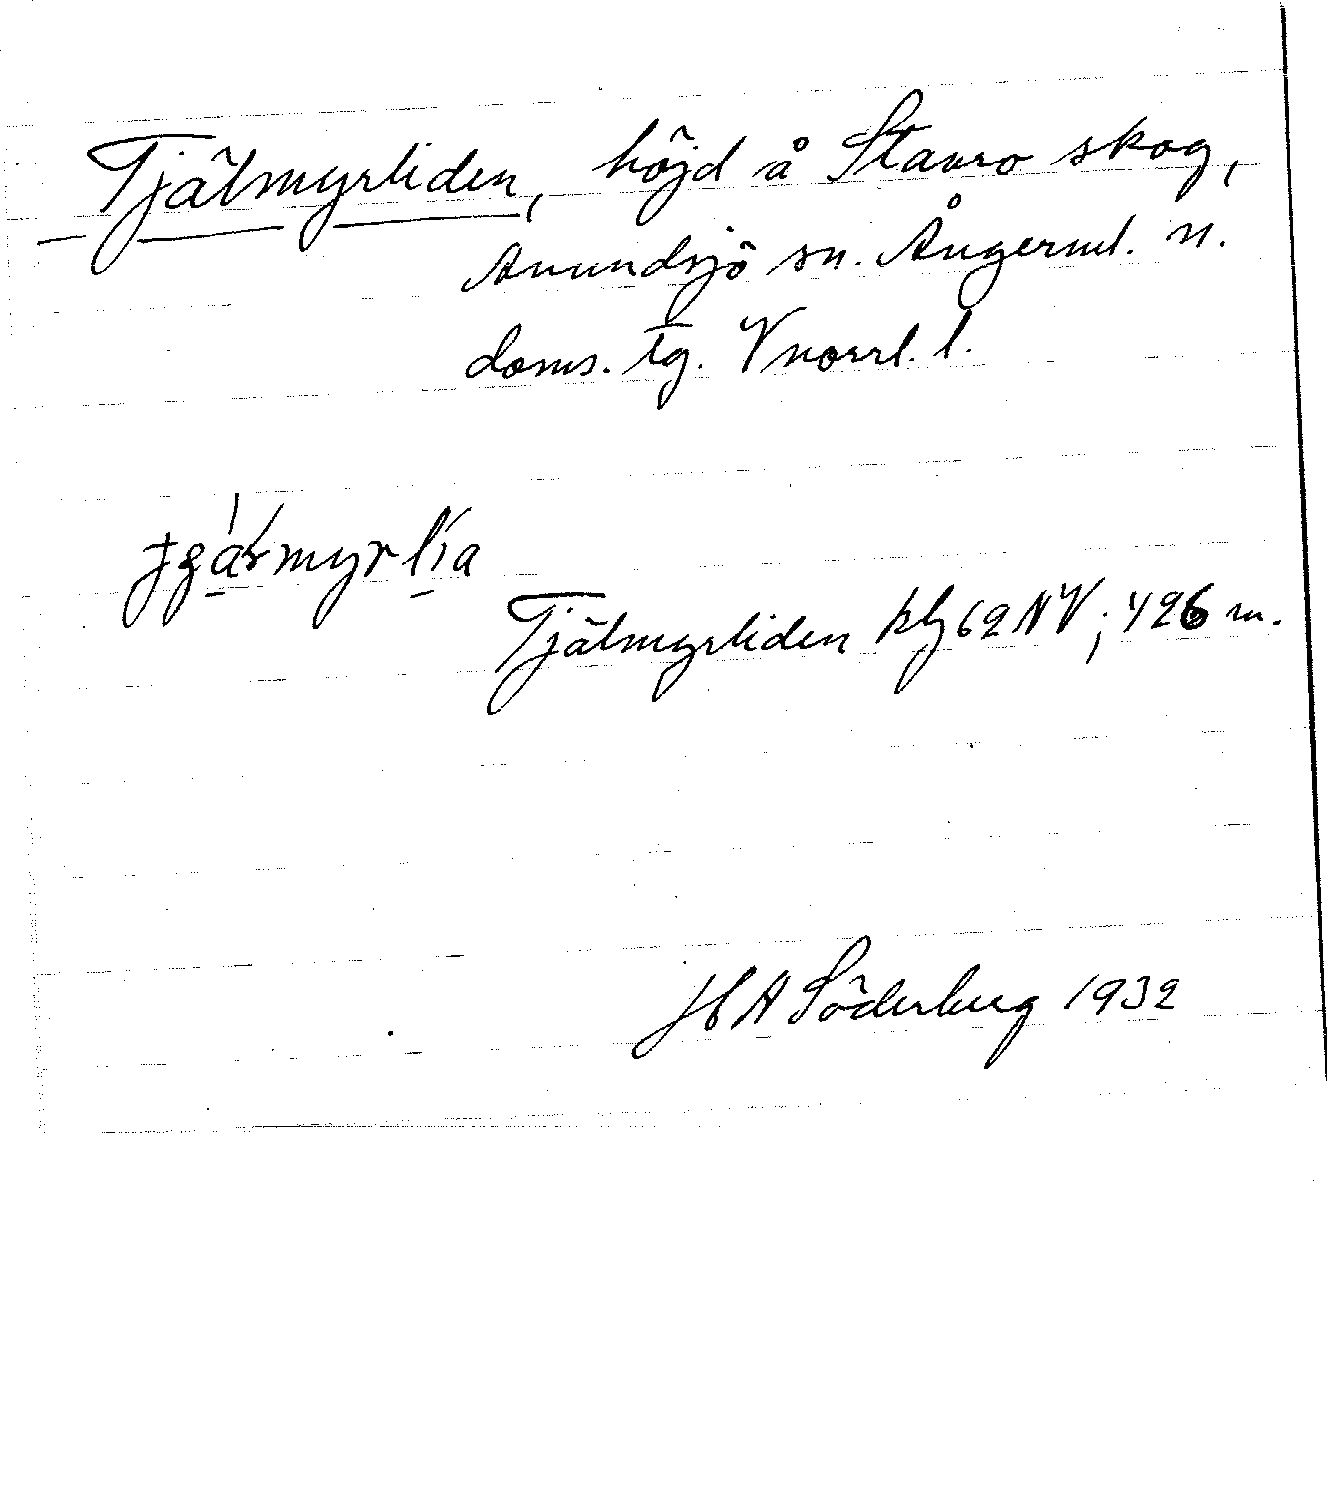 Tjälmyrliden, höjd å Stavro skog,
Anundsjö sn. Ångerml. n.
doms. tg. Vnorrl. l.
Tjälmyrliden kbl 62 NV; 426 m.
H A Söderberg 1932